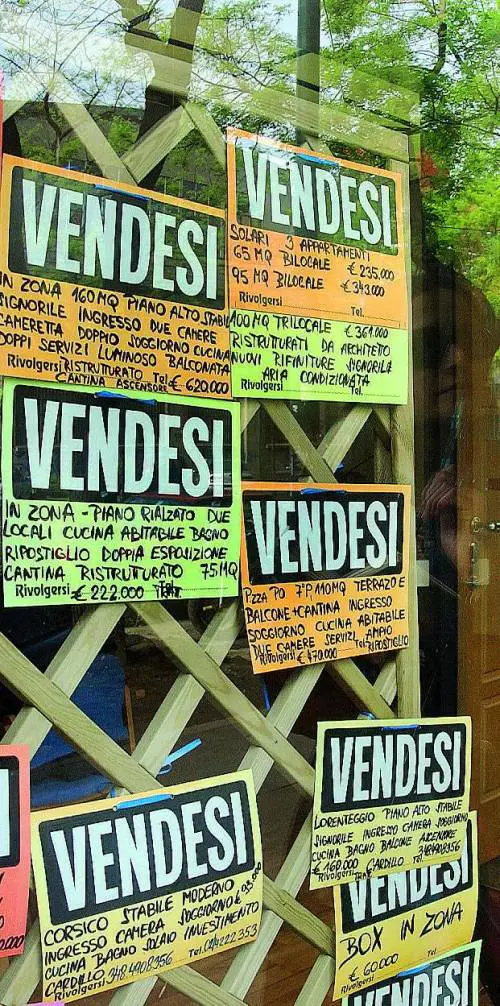 VENDESI
IN ZONA 160 MQ PIANO ALTO STABILE
SIGNORILE INGRESSO DUE CAMERE
CAMERETTA DOPPIO SOGGIORNO CUCINA
DOPPI SERVIZI LUMINOSO BALCONATA
Rivolgersi RISTRUTTURATO Tel. € 620.000
CANTINA ASCENSORE
VENDESI
SOLARI 3 APPARTAMENTI
65 MQ BILOCALE € 235.000
95 MQ BILOCALE € 343.000
Rivolgersi Tel.
100 MQ TRILOCALE € 361.000
RISTRUTTURATI DA ARCHITETTO
NUOVI RIFINITURE SIGNORILE
ARIA CONDIZIONATA
Rivolgersi Tel.
VENDESI
IN ZONA - PIANO RIALZATO DUE
LOCALI CUCINA ABITABILE BAGNO
RIPOSTIGLIO DOPPIA ESPOSIZIONE
CANTINA RISTRUTTURATO 75 MQ
Rivolgersi € 222.000
VENDESI
P.ZZA PO 7°P, 110 MQ TERRAZO E
BALCONE + CANTINA INGRESSO
SOGGIORNO CUCINA ABITABILE
DUE CAMERE SERVIZI, AMPIO
Rivolgersi € 470.000 Tel. RIPOSTIGLIO
VENDESI
LORENTEGGIO PIANO ALTO STABILE
SIGNORILE INGRESSO CAMERA SOGGIORNO
CUCINA BAGNO BALCONE ASCENSORE
€ 168.000 CARDILLO Tel. 3484908956
Rivolgersi
VENDESI
CORSICO STABILE MODERNO
INGRESSO CAMERA SOGGIORNO €
CUCINA BAGNO SOLAIO INVESTIMENTO
CARDILLO 3484908956 Tel.
Rivolgersi
VENDESI
BOX IN ZONA
€ 60.000
Rivolgersi Tel.
VENDESI